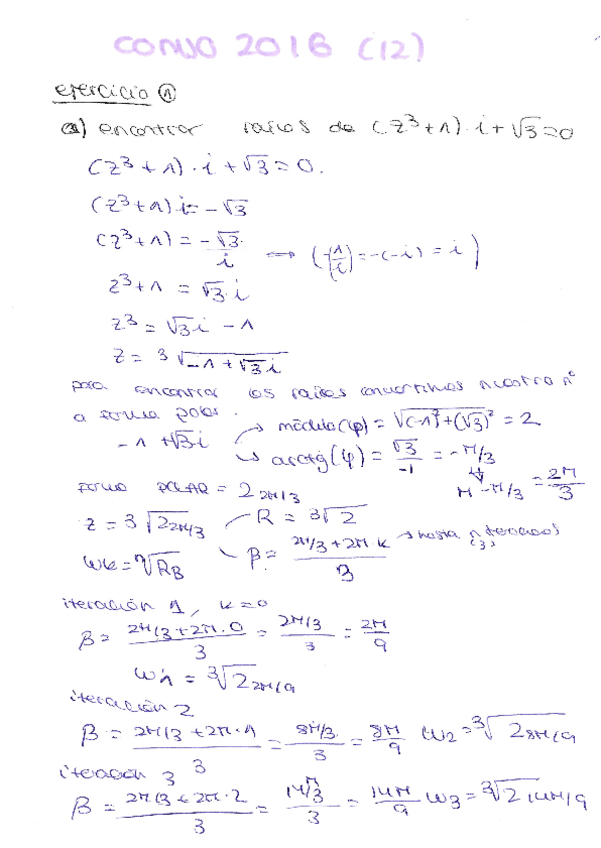 CONVO 2016 (12)
ejercicio ①
a) encontrar raíces de (z³+1)·i+√3=0
(z³+1)·i+√3=0.
(z³+1)i=-√3
(z³+1) = -√3/i ⟹ (-1/i = -(-i) = i)
z³+1 = √3·i
z³ = √3i - 1
z = 3√-1+√3i
para encontrar las raíces convertimos nuestro nº
a forma polar.
-1+√3i
→ módulo(φ) = √(-1)²+(√3)² = 2
→ arctg(φ) = √3/-1 = -π/3
π - π/3 = 2π/3
forma POLAR = 2 2π/3
z = 3√2 2π/3 R = 3√2
wk = ⁿ√R β β = 2π/3+2πk / 3 → hasta n (3)
iteración 1, k=0
β = 2π/3+2π·0 / 3 = 2π/3 / 3 = 2π/9
w1 = ³√2 2π/9
iteración 2
β = 2π/3+2π·1 / 3 = 8π/3 / 3 = 8π/9 w2 = ³√2 8π/9
iteración 3
β = 2π/3+2π·2 / 3 = 14π/3 / 3 = 14π/9 w3 = ³√2 14π/9